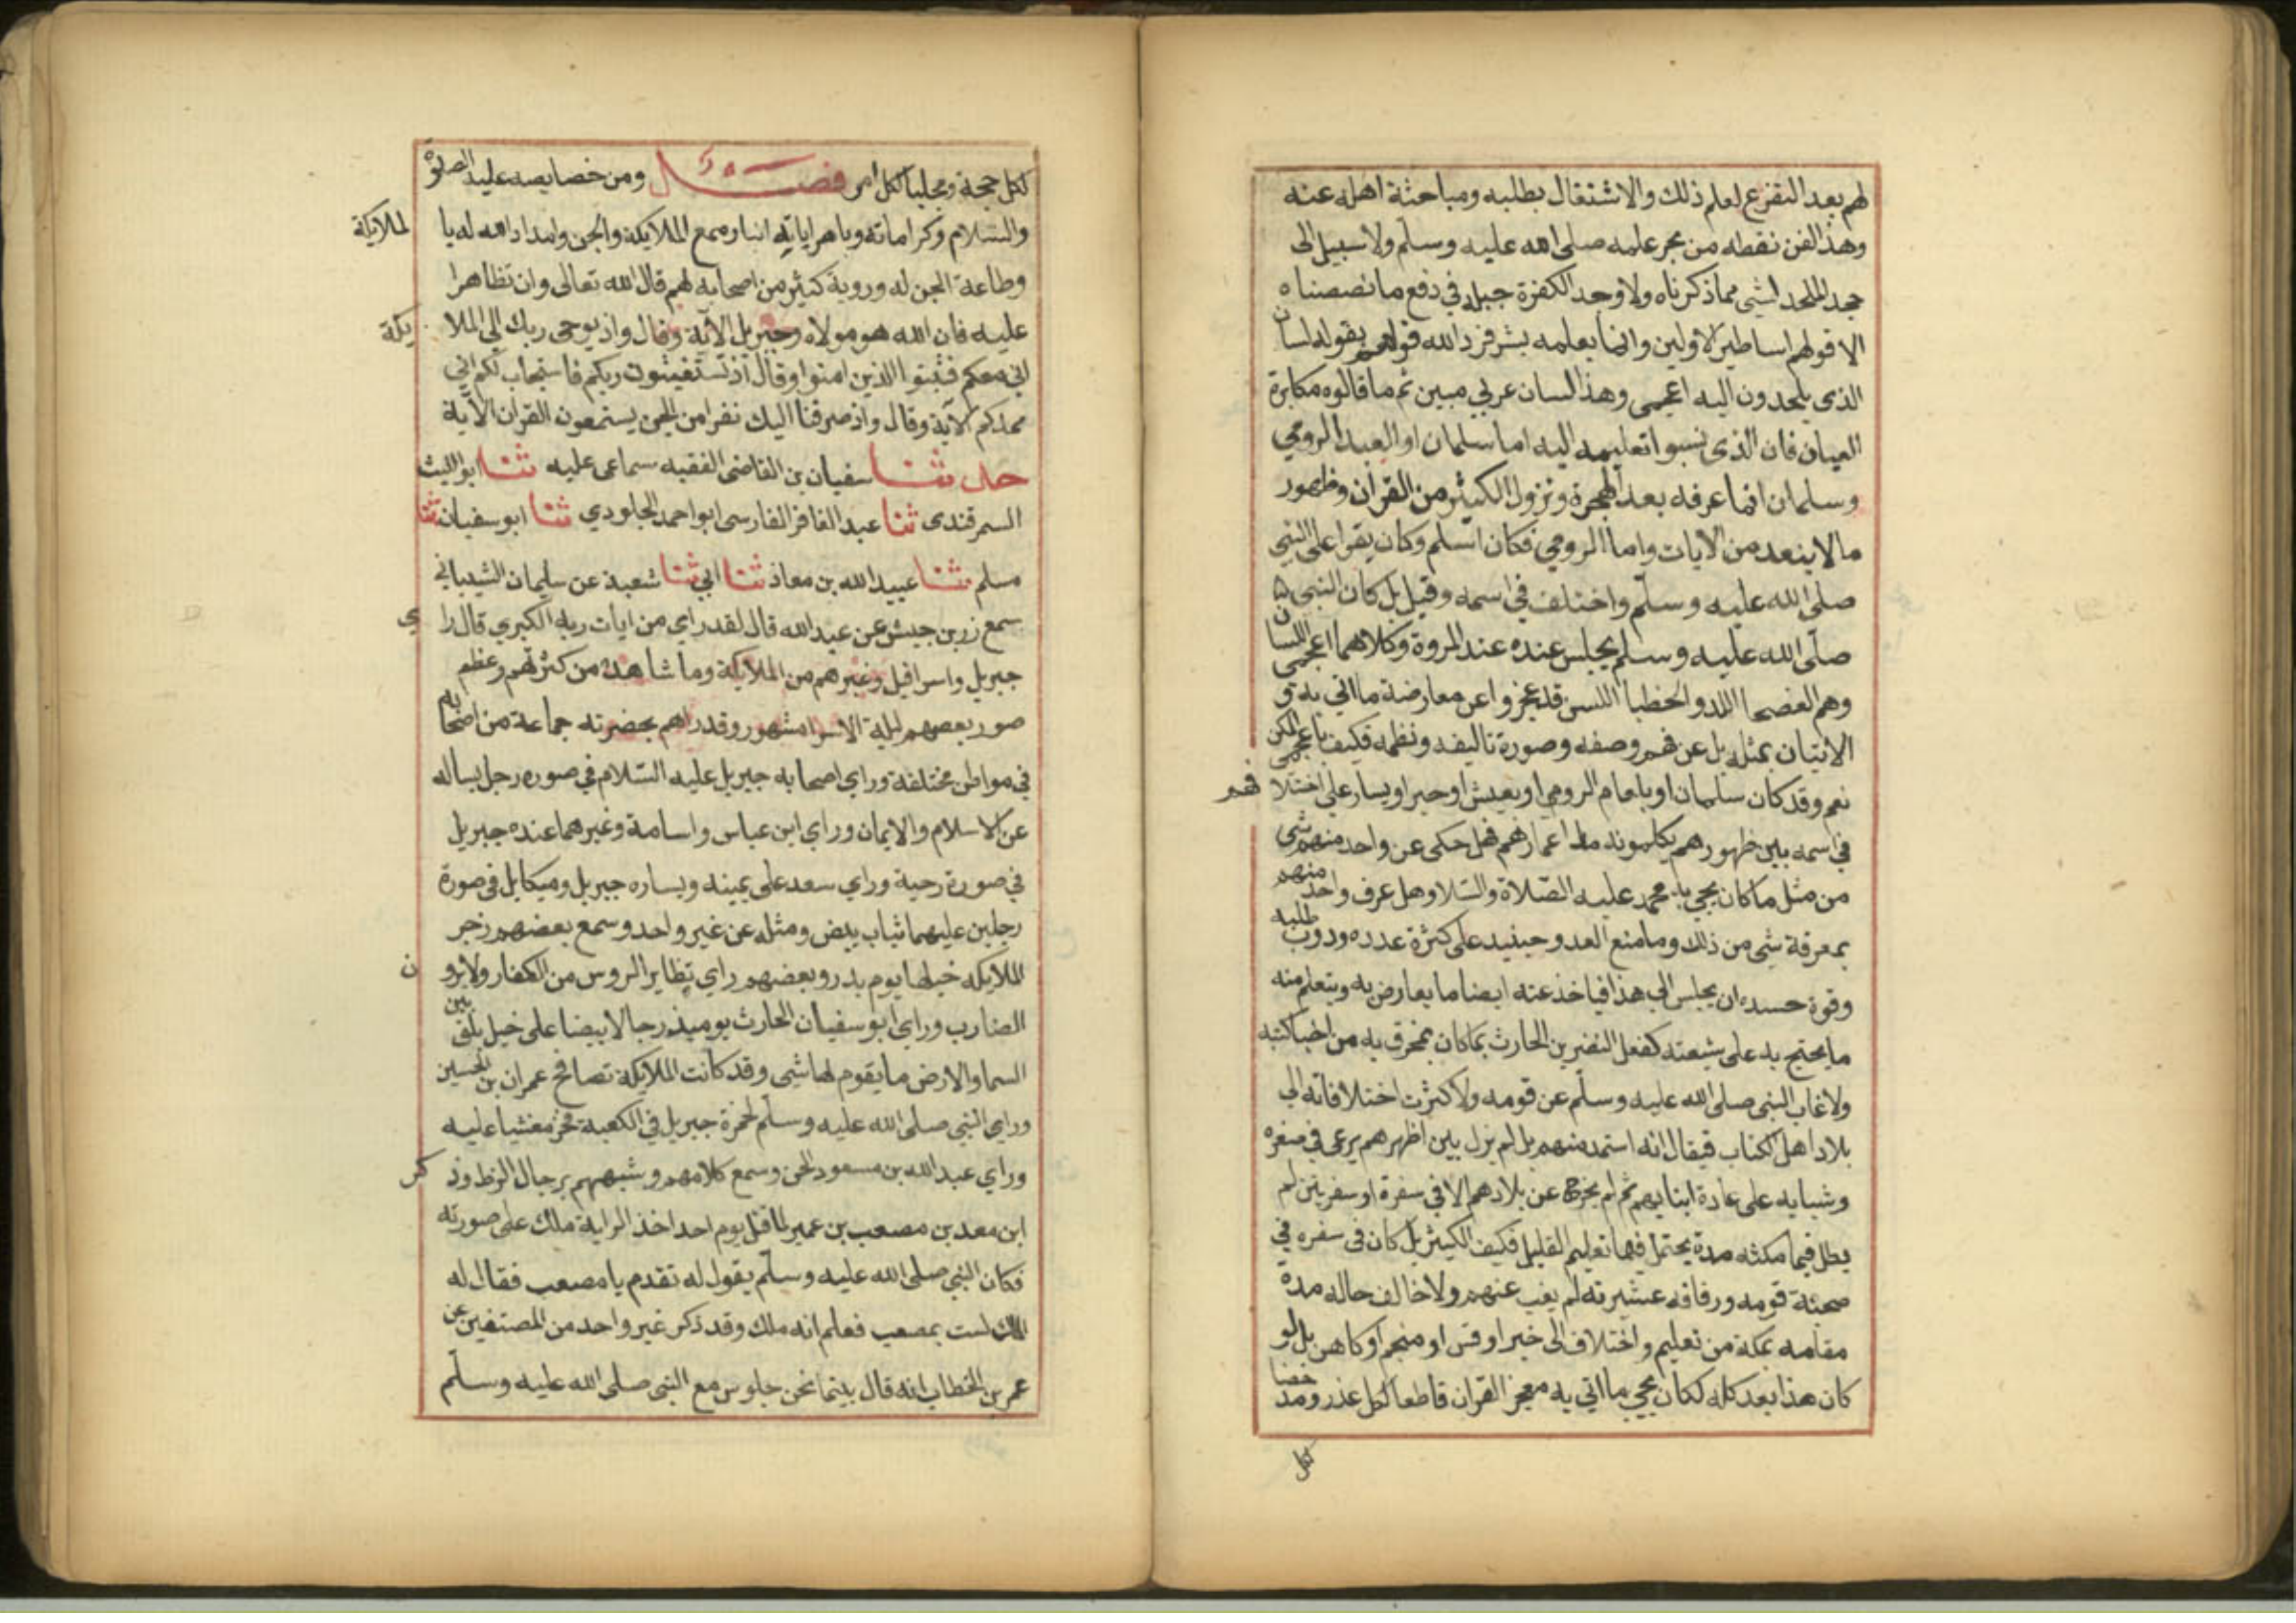 لهم بعد التفرغ لعلم ذلك والاشتغال بطلبه ومباحثة اهله عنه
وهذا الفن نقطه من بحر علمه صلى الله عليه وسلم ولا سبيل الى
جحد الملحد لشي مما ذكرناه ولا وجد الكفرة حيلة في دفع ما نصصناه
الا قولهم اساطير الاولين وانما يعلمه بشر فرد الله قولهم بقوله لسان
الذي يلحدون اليه اعجمي وهذا لسان عربي مبين ثم ما قالوه مكابرة
العيان فان الذي نسبوا تعليمه اليه اما سلمان او العبد الرومي
وسلمان انما عرفه بعد الهجرة ونزول الكثير من القران وظهور
ما لا ينعد من الايات واما الرومي فكان اسلم وكان يقرا على النبي
صلى الله عليه وسلم واختلف في اسمه وقيل بل كان النبي
صلى الله عليه وسلم يجلس عنده عند المروة وكلاهما اعجمي اللسان
وهم الفصحا اللد والخطبا اللسن قد عجزوا عن معارضة ما اتي به و
الاتيان بمثله بل عن فهم وصفه وصورة تاليفه ونظمه فكيف باعجمي الكن
نعم وقد كان سلمان او بلعام الرومي او يعيش او جبر او يسار علي اختلافهم
في اسمه بين ظهورهم يكلمونه مدا اعمارهم فهل حكي عن واحد منهم شي
من مثل ما كان يجي به محمد عليه الصلاة والسلام وهل عرف واحد منهم
بمعرفة شي من ذلك وما منع العدو حينيد علي كثرة عدده ودوب طلبه
وقوة حسده ان يجلس الي هذا فياخذ عنه ايضا ما يعارض به ويتعلم منه
ما يحتج به على شيعته كفعل النضر بن الحارث بما كان يمخرق به من اخبار كتبه
ولا غاب النبي صلى الله عليه وسلم عن قومه ولا كثرت اختلافاته الي
بلاد اهل الكتاب فيقال انه استمد منهم بل لم يزل بين اظهرهم يرعى في صغره
وشبابه على عادة ابنايهم ثم لم يخرج عن بلادهم الا في سفرة او سفرين لم
يطل فيها مكثه مدة يحتمل فيها تعليم القليل فكيف الكثير بل كان في سفره في
صحبة قومه ورفاقه عشيرته لم يغب عنهم ولا خالف حاله مدة
مقامه بمكة من تعليم واختلاف الى خبر او قس او منجم او كاهن بل لو
كان هذا بعد كله لكان مجي ما اتي به معجز القران قاطعا لكل عذر ومدحضا
لكل
لكل حجة ومجليا لكل امر فصل ومن خصايصه عليه الصلوة
والسلام وكراماته وباهر اياته انباوه مع الملايكة والجن وامداد الله له بالملايكة
وطاعة الجن له وروية كثير من اصحابه لهم قال الله تعالى وان تظاهرا
عليه فان الله هو مولاه وجبريل الآية وقال واذ يوحى ربك الي الملايكة
اني معكم فثبتوا الذين امنوا وقال اذ تستغيثون ربكم فاستجاب لكم اني
ممدكم الآية وقال واذ صرفنا اليك نفرا من الجن يستمعون القران الآية
حدثنا سفيان بن القاضى الفقيه سماعى عليه ثنا ابو الليث
السمرقندى ثنا عبد الغافر الفارسى ابو احمد الجلودي ثنا ابو سفيان ثنا
مسلم ثنا عبيد الله بن معاذ ثنا ابي ثنا شعبة عن سليمان الشيباني
سمع زر بن حبيش عن عبد الله قال لقد راي من ايات ربه الكبري قال راي
جبريل واسرافيل وغيرهم من الملايكة وما شاهده من كثرتهم وعظم
صور بعضهم ليلة الاسرا مشهور وقد راهم بحضرته جماعة من اصحابه
في مواطن مختلفة وراي اصحابه جبريل عليه السلام في صوره رجل يساله
عن الاسلام والايمان وراي ابن عباس واسامة وغيرهما عنده جبريل
في صورة دحية وراي سعد على يمينه ويساره جبريل وميكايل في صورة
رجلين عليهما ثياب بيض ومثله عن غير واحد وسمع بعضهم زجر
الملايكه خيلها يوم بدر وبعضهم راي تطاير الروس من الكفار ولا يرون
الضارب وراي ابو سفيان الحارث يوميذ رجالا بيضا على خيل بلق بين
السما والارض ما يقوم لها شي وقد كانت الملايكة تصافح عمران بن الحصين
وراي النبي صلى الله عليه وسلم لحمزة جبريل في الكعبة فخر مغشيا عليه
وراي عبد الله بن مسعود الجن وسمع كلامهم وشبههم برجال الزط وذكر
ابن سعد بن مصعب بن عمير لما قتل يوم احد اخذ الراية ملك على صورته
فكان النبي صلى الله عليه وسلم يقول له تقدم يا مصعب فقال له
الملك لست بمصعب فعلم انه ملك وقد ذكر غير واحد من المصنفين عن
عمر بن الخطاب انه قال بينما نحن جلوس مع النبي صلى الله عليه وسلم